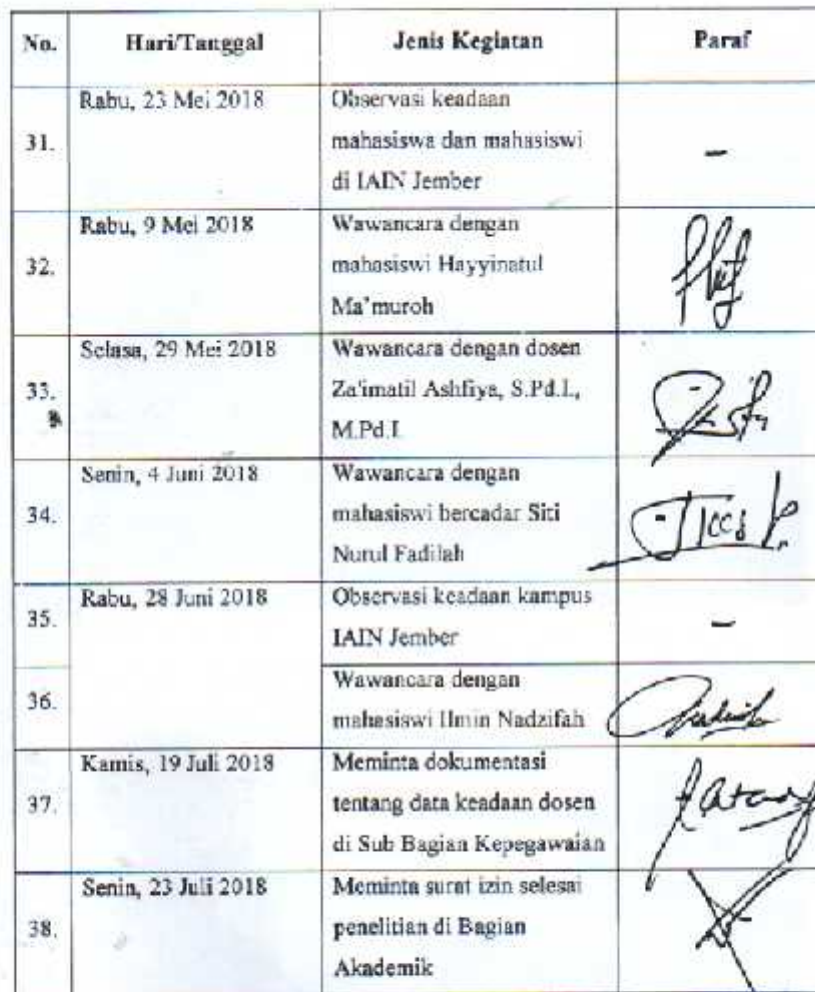 No. Hari/Tanggal Jenis Kegiatan Paraf
31. Rabu, 23 Mei 2018 Observasi keadaan
mahasiswa dan mahasiswi
di IAIN Jember
-
32. Rabu, 9 Mei 2018 Wawancara dengan
mahasiswi Hayyinatul
Ma'muroh
33. Selasa, 29 Mei 2018 Wawancara dengan dosen
Za'imatil Ashfiya, S.Pd.I.,
M.Pd.I
34. Senin, 4 Juni 2018 Wawancara dengan
mahasiswi bercadar Siti
Nurul Fadilah
35. Rabu, 28 Juni 2018 Observasi keadaan kampus
IAIN Jember
-
36. Wawancara dengan
mahasiswi Ilmin Nadzifah
37. Kamis, 19 Juli 2018 Meminta dokumentasi
tentang data keadaan dosen
di Sub Bagian Kepegawaian
38. Senin, 23 Juli 2018 Meminta surat izin selesai
penelitian di Bagian
Akademik